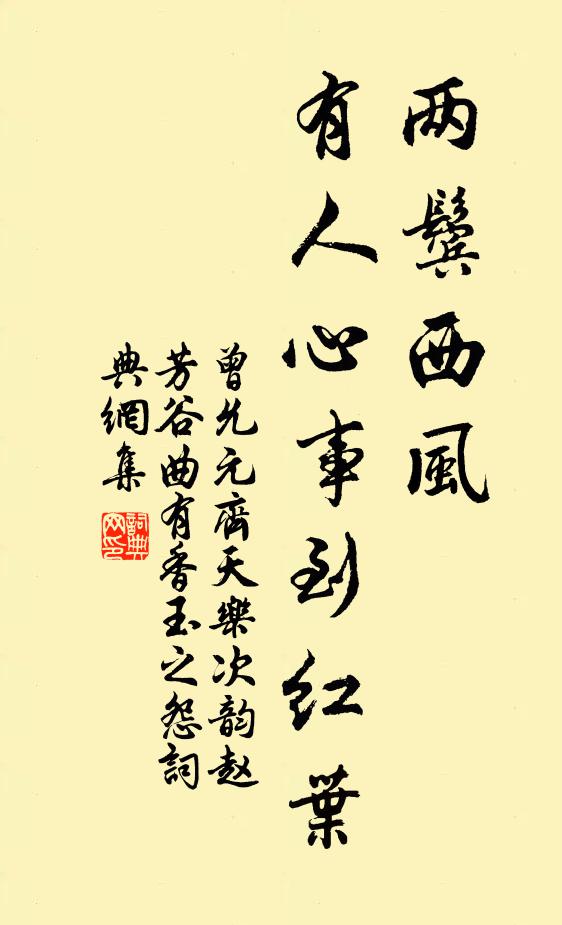 两鬓西風
有人心事到红葉
曾允元齊天樂次韵赵
芳谷曲有香玉之怨詞
典網集
詞典网印